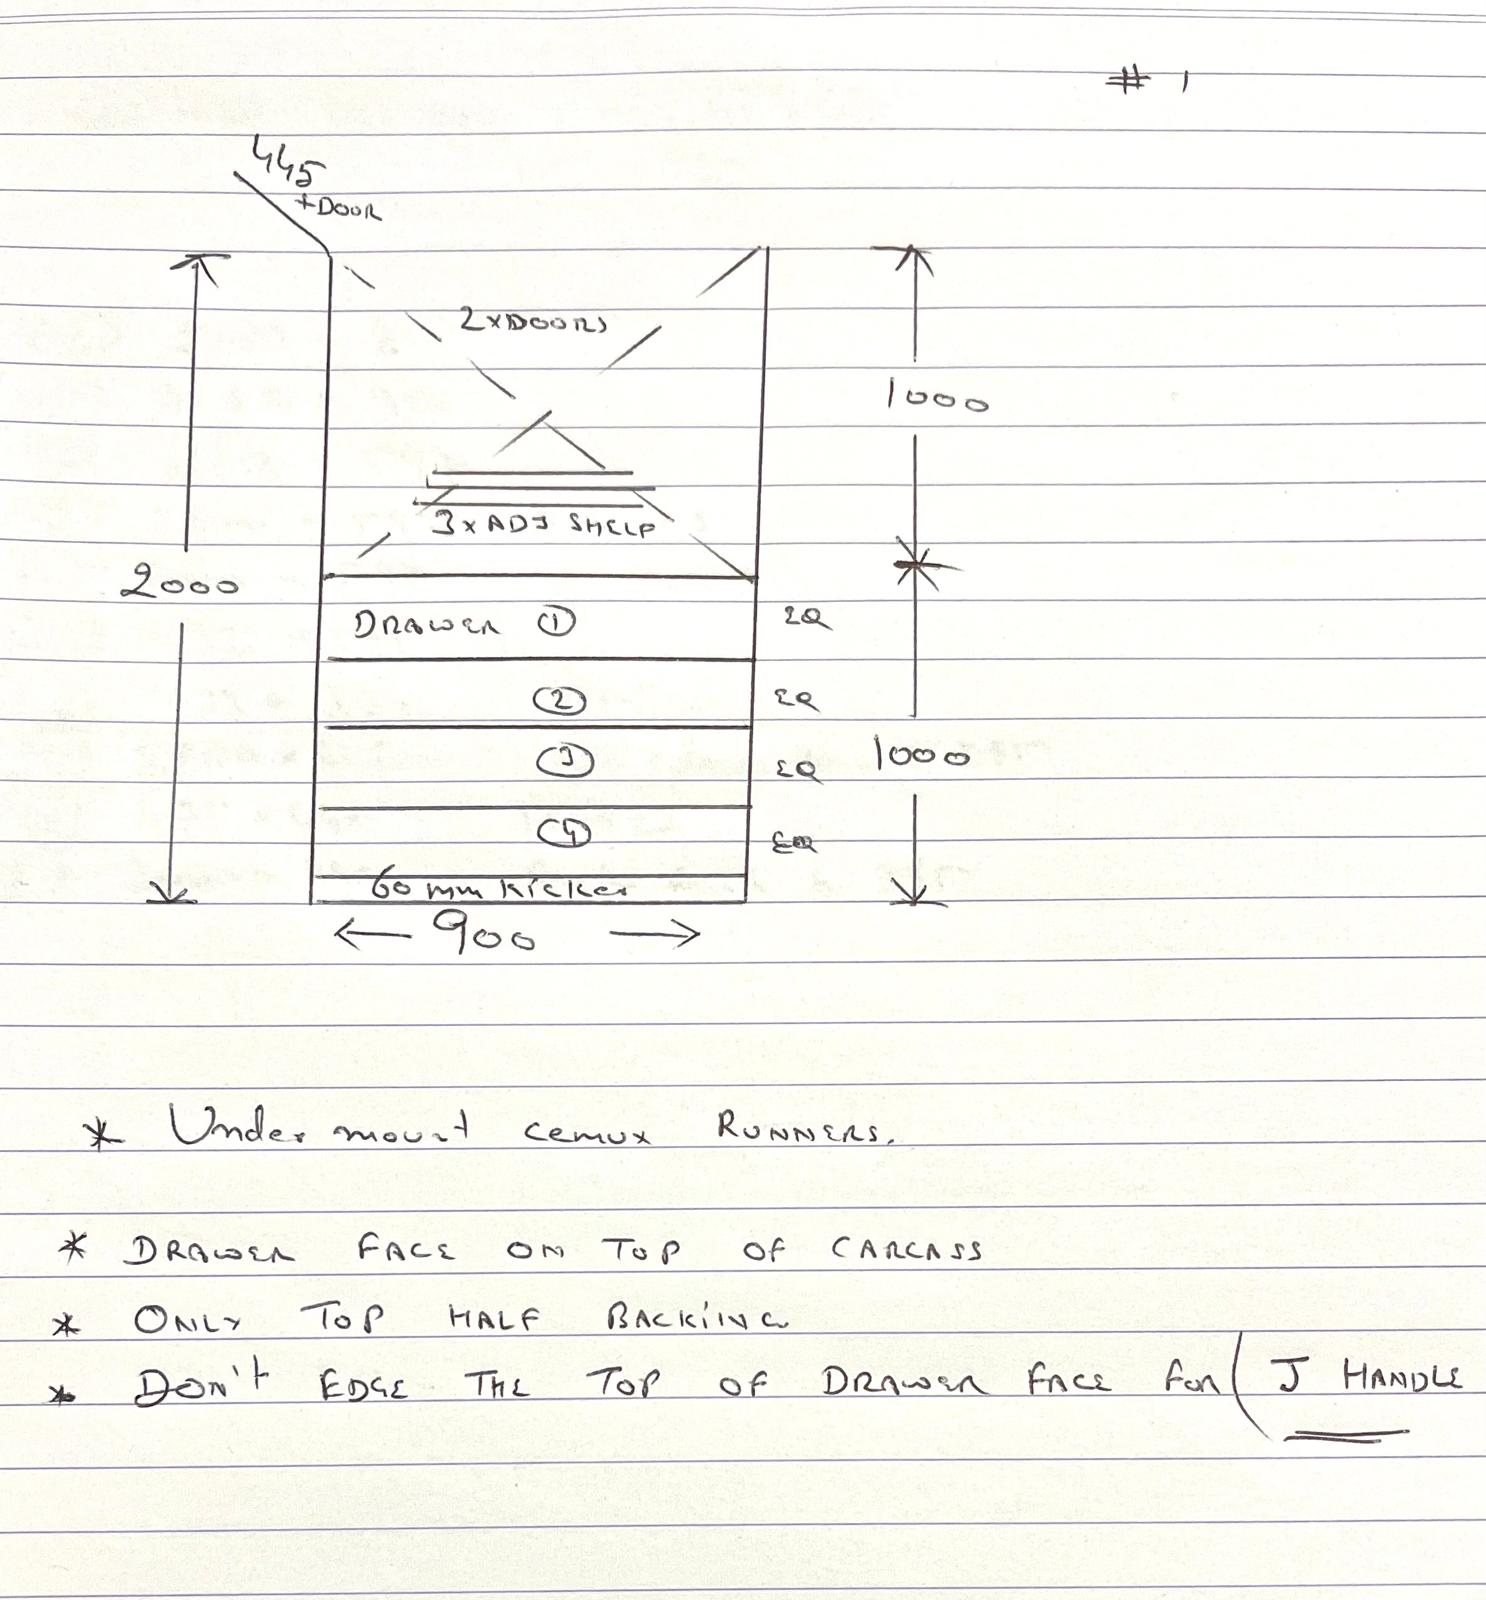 # 1
445
+DOOR
2xDOORS
1000
3x ADJ SHELF
2000
DRAWER 1 EQ
2 EQ
3 EQ
1000
4 EQ
60mm kicker
900
* Under mount cemux RUNNERS.
* DRAWER FACE ON TOP OF CARCASS
* ONLY TOP HALF BACKING
* DON'T EDGE THE TOP OF DRAWER FACE FOR ( J HANDLE